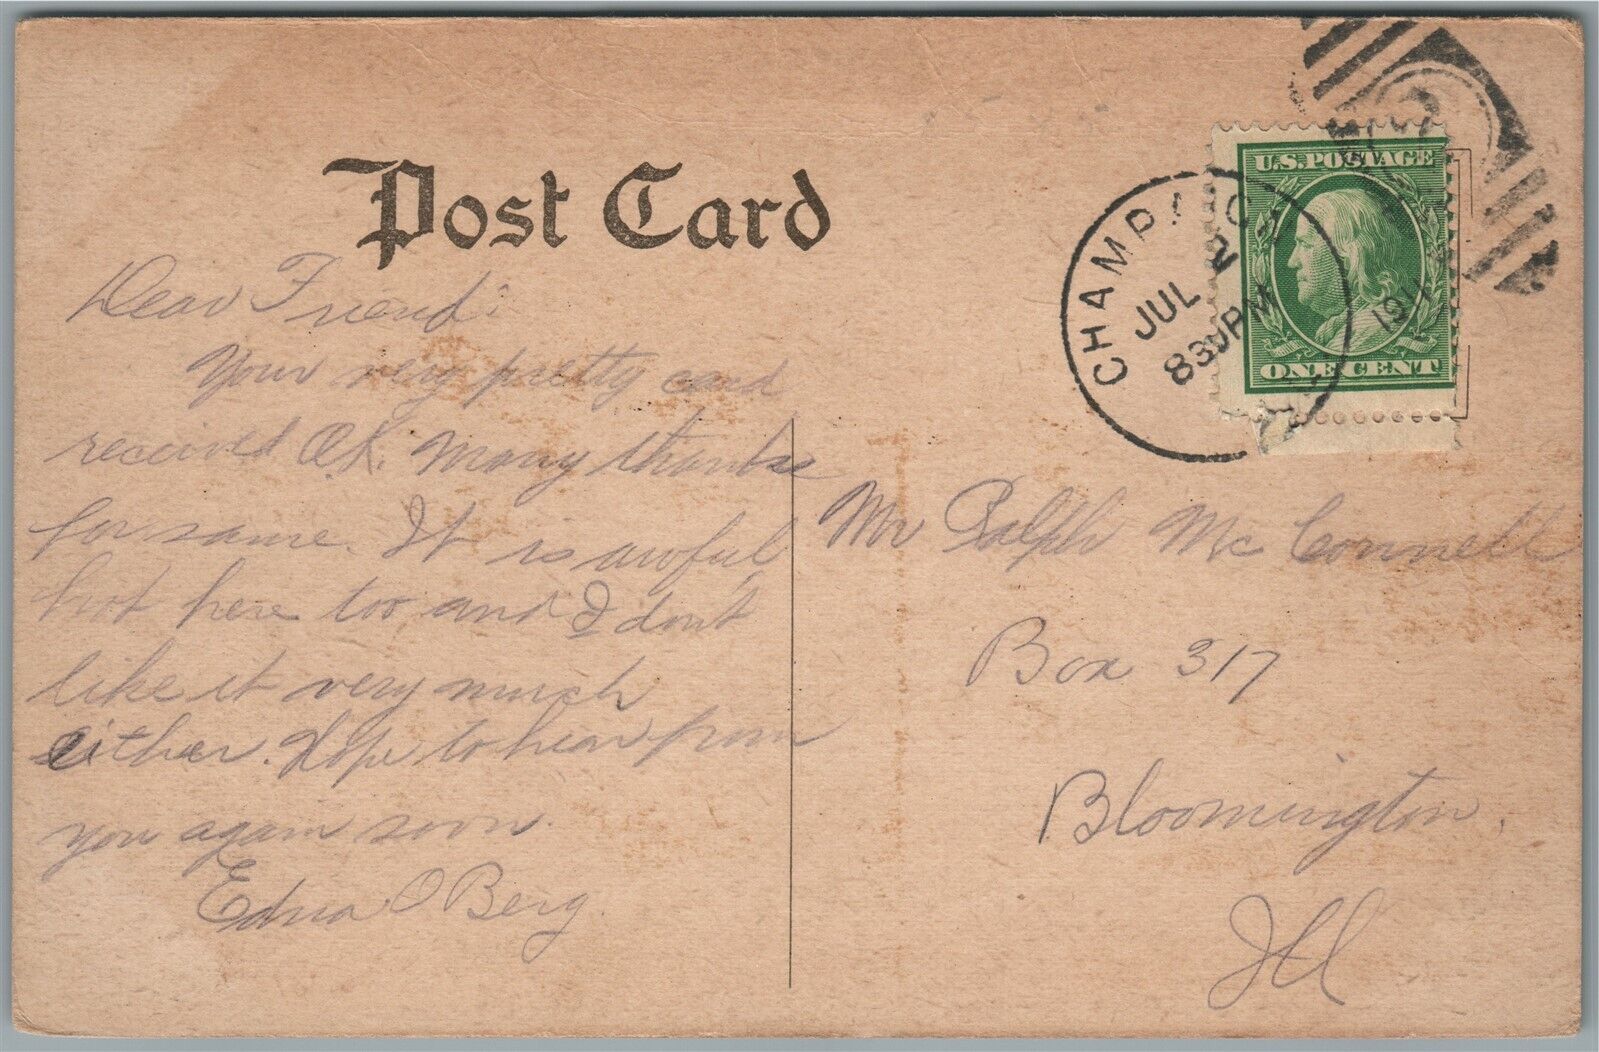 Post Card
U.S. POSTAGE
ONE CENT
JUL 2
830PM
191
Dear Friend:
Your very pretty card
received O.K. Many thanks
for same. It is awful
hot here too and I don't
like it very much
either. Hope to hear from
you again soon.
Edna O Berg.
Mr Ralph McConnell
Box 317
Bloomington,
Ill